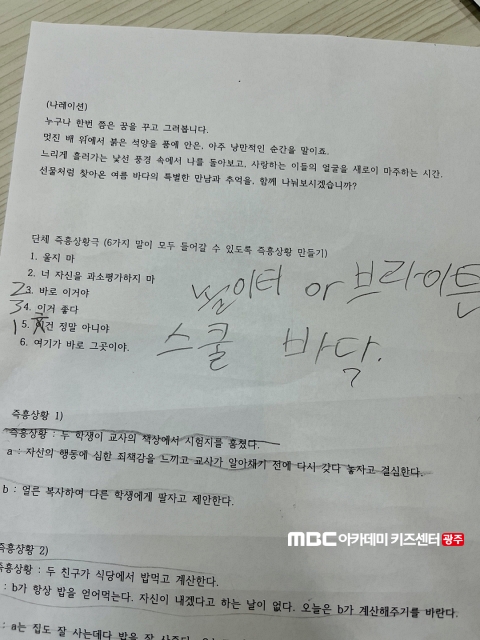 (나레이션)
누구나 한번 쯤은 꿈을 꾸고 그려봅니다.
멋진 배 위에서 붉은 석양을 품에 안은, 아주 낭만적인 순간을 말이죠.
느리게 흘러가는 낯선 풍경 속에서 나를 돌아보고, 사랑하는 이들의 얼굴을 새로이 마주하는 시간.
선물처럼 찾아온 여름 바다의 특별한 만남과 추억을, 함께 나눠보시겠습니까?
단체 즉흥상황극 (6가지 말이 모두 들어갈 수 있도록 즉흥상황 만들기)
1. 울지 마
2. 너 자신을 과소평가하지 마
2 3. 바로 이거야
3 4. 이거 좋다
1 5. 이건 정말 아니야
6. 여기가 바로 그곳이야.
놀이터 or 브라이튼
스쿨 바닥.
즉흥상황 1)
즉흥상황 : 두 학생이 교사의 책상에서 시험지를 훔쳤다.
a : 자신의 행동에 심한 죄책감을 느끼고 교사가 알아채기 전에 다시 갖다 놓자고 결심한다.
b : 얼른 복사하여 다른 학생에게 팔자고 제안한다.
MBC아카데미 키즈센터 광주
즉흥상황 2)
즉흥상황 : 두 친구가 식당에서 밥먹고 계산한다.
: b가 항상 밥을 얻어먹는다. 자신이 내겠다고 하는 날이 없다. 오늘은 b가 계산해주기를 바란다.
: a는 집도 잘 사는데다 밥을 잘 사준다.